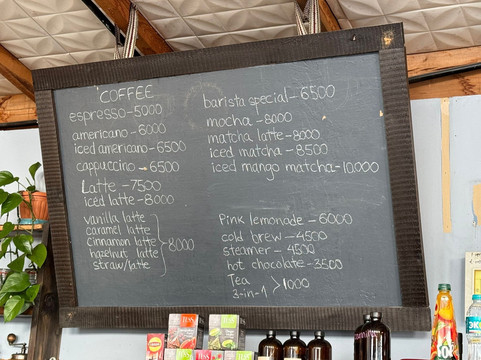 COFFEE
espresso - 5000
americano - 6000
iced americano - 6500
cappuccino - 6500
Latte - 7500
iced latte - 8000
vanilla latte
caramel latte
cinnamon latte
hazelnut latte
straw/latte
8000
barista special - 6500
mocha - 8000
matcha latte - 8000
iced matcha - 8500
iced mango matcha - 10.000
Pink lemonade - 6000
cold brew - 4500
steamer - 4500
hot chocolate - 3500
Tea
3-in-1 > 1000
TEA